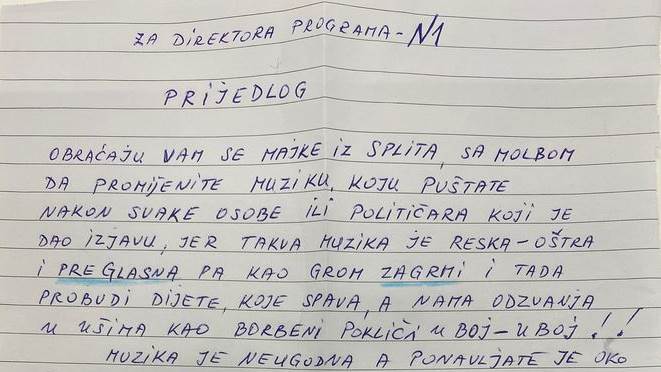 ZA DIREKTORA PROGRAMA - N1
PRIJEDLOG
OBRAĆAJU VAM SE MAJKE IZ SPLITA, SA MOLBOM
DA PROMIJENITE MUZIKU, KOJU PUŠTATE
NAKON SVAKE OSOBE ILI POLITIČARA KOJI JE
DAO IZJAVU, JER TAKVA MUZIKA JE RESKA-OŠTRA
I PREGLASNA PA KAO GROM ZAGRMI I TADA
PROBUDI DIJETE, KOJE SPAVA, A NAMA ODZVANJA
U UŠIMA KAO BORBENI POKLIČI U BOJ-U BOJ!!
MUZIKA JE NEUGODNA A PONAVLJATE JE OKO